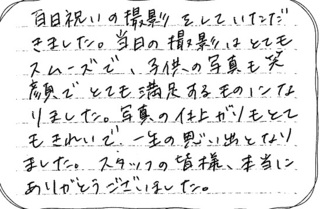 百日祝いの撮影をしていただ
きました。当日の撮影はとても
スムーズで、子供の写真も笑
顔でとても満足するものにな
りました。写真の仕上がりもとて
もきれいで、一生の思い出となり
ました。スタッフの皆様、本当に
ありがとうございました。